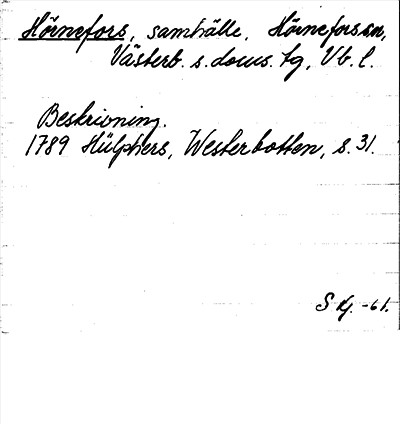 Hörnefors, samhälle, Hörnefors sn,
Västerb. s. doms. tg, Vb. l.
Beskrivning.
1789 Hülphers, Westerbotten, s. 31.
S Kj. -61.